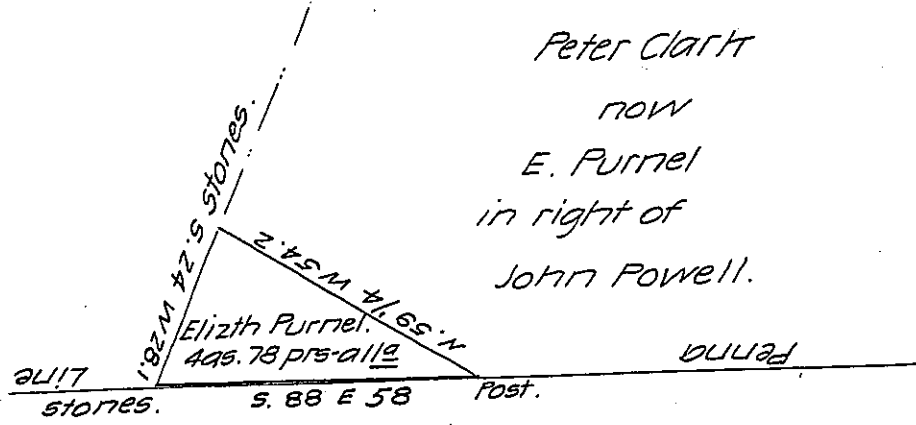 Peter Clark
now
E. Purnel
in right of
John Powell.
stones.
S. 24 W 28.1
N. 59 1/4 W 54.2
Elizth Purnel.
4as. 78 prs - alla
Line
Penna
stones.
S. 88 E 58
Post.